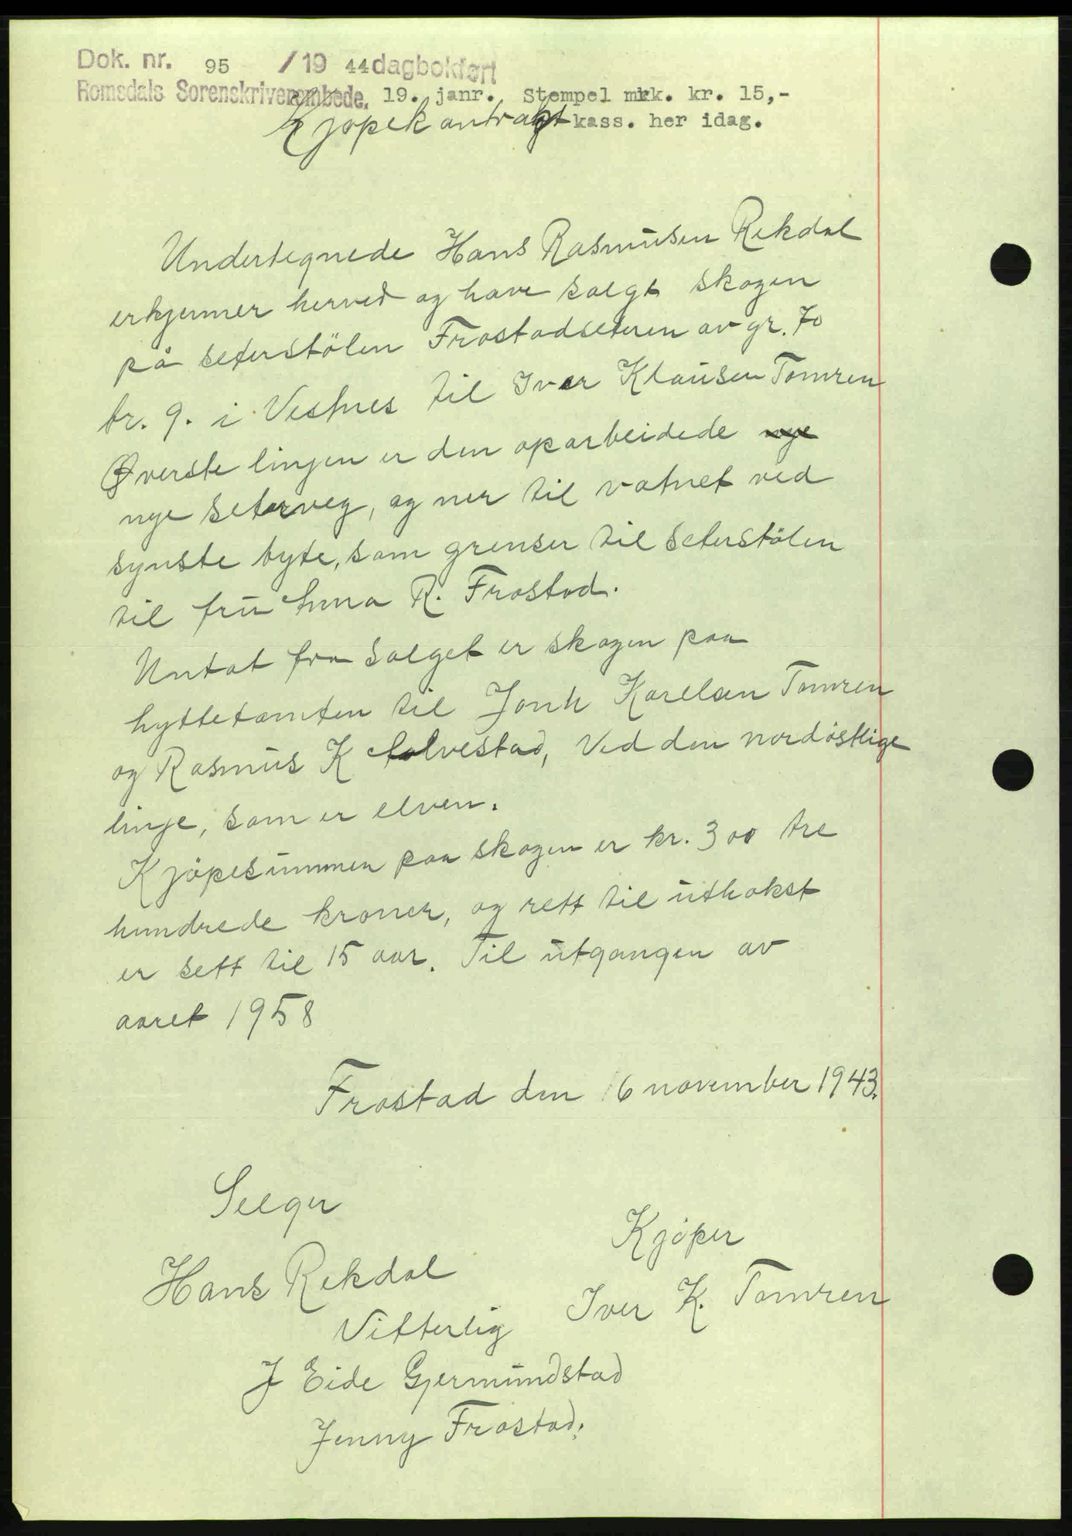 Dok. nr. 95 / 19 44 dagbokført
Romsdals Sorenskriverembede, 19. janr. Stempel mrk. kr. 15,-
Kjøpekontrakt kass. her idag.
Undertegnede Hans Rasmusen Rekdal
erkjenner herved og have solgt skogen
på seterstölen Frostadseteren av gr. 70
br. 9. i Vestnes til Iver Klausen Tomren
Øverste linjen er den oparbeidede nye
nye seterveg, og ner til vatnet ved
synste byte, som grenser til seterstölen
til fru Anna R. Frostad.
Untat fra salget er skogen paa
hyttetomten til Jonh Karelsen Tomren
og Rasmus K Salvestad, Ved den nordöstlige
linje, som er elven.
Kjöpesummen paa skogen er kr. 300 tre
hundrede kroner, og rett til uthokst
er sett til 15 aar. Til utgangen av
aaret 1958
Frostad den 16 november 1943.
Selger
Kjöper
Hans Rekdal
Iver K. Tomren
Vitterlig
J Eide Gjermundstad
Jenny Frostad.